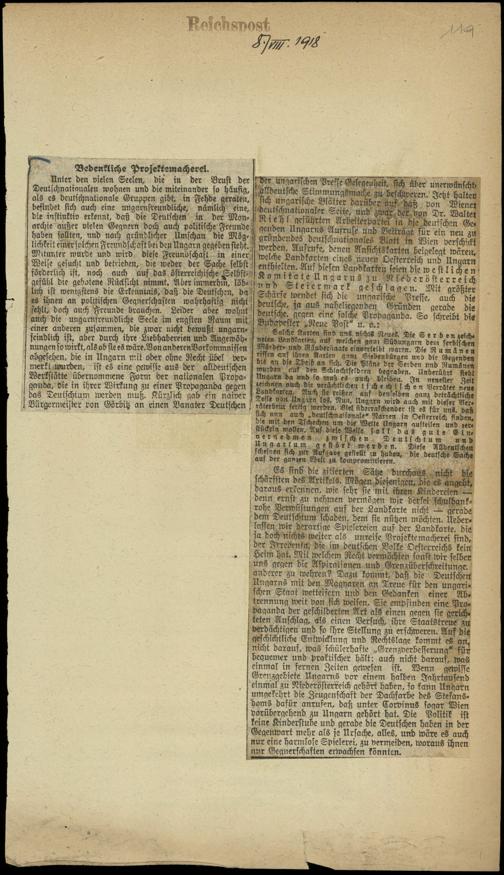 Reichspost
8/VIII. 1918
119
Bedenkliche Projektemacherei.
Unter den vielen Seelen, die in der Brust der
Deutschnationalen wohnen und die miteinander so häufig,
als es deutschnationale Gruppen gibt, in Fehde geraten,
befindet sich auch eine ungarnfreundliche, nämlich eine,
die instinktiv erkennt, daß die Deutschen in der Mon-
archie außer vielen Gegnern doch auch politische Freunde
haben sollen, und nach gründlicher Umschau die Mög-
lichkeit einer solchen Freundschaft bei den Ungarn gegeben sieht.
Mitunter wurde und wird diese Freundschaft in einer
Weise gesucht und betrieben, die weder der Sache selbst
förderlich ist, noch auch auf das österreichische Selbst-
gefühl die gebotene Rücksicht nimmt. Aber immerhin, löb-
lich ist wenigstens die Erkenntnis, daß die Deutschen, da
es ihnen an politischen Gegnerschaften wahrhaftig nicht
fehlt, doch auch Freunde brauchen. Leider aber wohnt
auch die ungarnfreundliche Seele im engsten Raum mit
einer anderen zusammen, die zwar nicht bewußt ungarn-
feindlich ist, aber durch ihre Liebhabereien und Angewöh-
nungen so wirkt, als ob sie es wäre. Von anderen Vorkommnissen
abgesehen, die in Ungarn mit oder ohne Recht übel ver-
merkt wurden, ist es eine gewisse aus der alldeutschen
Werkstätte übernommene Form der nationalen Propa-
ganda, die in ihrer Wirkung zu einer Propaganda gegen
das Deutschtum werden muß. Kürzlich gab ein naiver
Bürgermeister von Görbitz an einen Banater Deutschen
der ungarischen Presse Gelegenheit, sich über unerwünschte
alldeutsche Stimmungsmache zu beschweren. Jetzt halten
sich ungarische Blätter darüber auf, daß von Wiener
deutschnationaler Seite, und zwar von der von Dr. Walter
Riehl geführten Arbeiterpartei in die deutschen Ge-
genden Ungarns Aufrufe und Beiträge für ein neu zu
gründendes deutschnationales Blatt in Wien verschickt
werden. Aufrufe, denen Ansichtskarten beigelegt wären,
welche Landkarten eines neuen Oesterreich und Ungarn
enthielten. Auf diesen Landkarten seien die westlichen
Komitate Ungarns zu Niederösterreich
und Steiermark geschlagen. Mit größter
Schärfe wendet sich die ungarische Presse, auch die
deutsche, ja aus naheliegenden Gründen gerade die
deutsche, gegen eine solche Propaganda. So schreibt die
Budapester „Neue Post" u. a.:
Solche Karten sind uns nichts Neues. Die Serben zeich-
neten Landkarten, auf welchen ganz Südungarn dem serbischen
Mörder- und Räuberstaate einverleibt waren. Die Rumänen
rissen auf ihren Karten ganz Siebenbürgen und die Gegenden
bis an die Theiß an sich. Die Pläne der Serben und Rumänen
wurden auf den Schlachtfeldern begraben. Unberührt steht
Ungarn da und so wird es auch bleiben. In neuester Zeit
zeichnen auch die verräterischen tschechischen Verräter neue
Landkarten. Auch sie reißen auf denselben ganz beträchtliche
Teile von Ungarn los. Nun, Ungarn wird auch mit dieser Ver-
räterbrut fertig werden. Viel überraschender ist es für uns, daß
sich nun auch „deutschnationale" Narren in Oesterreich finden,
die mit den Tschechen um die Wette Ungarn aufteilen und zer-
stückeln wollen. Auf diese Weise soll das gute Ein-
vernehmen zwischen Deutschtum und
Ungartum gestört werden. Diese Alldeutschen
scheinen sich zur Aufgabe gestellt zu haben, die deutsche Sache
auf der ganzen Welt zu kompromittieren.
Es sind die zitierten Sätze durchaus nicht die
schärfsten des Artikels. Mögen diejenigen, die es angeht,
daraus erkennen, wie sehr sie mit ihren Kindereien —
denn ernst zu nehmen vermögen wir derlei schulbank-
frohe Verwüstungen auf der Landkarte nicht — gerade
dem Deutschtum schaden, dem sie nützen möchten. Ueber-
lassen wir derartige Spielereien auf der Landkarte, die
ja doch nichts weiter als unreife Projektemacherei sind,
der Irredenta, die im deutschen Volke Oesterreichs kein
Heim hat. Mit welchem Recht vermöchten sonst wir selber
uns gegen die Aspirationen und Grenzüberschreitungen
anderer zu wehren? Dazu kommt, daß die Deutschen
Ungarns mit den Magyaren an Treue für den ungari-
schen Staat wetteifern und den Gedanken einer Ab-
trennung weit von sich weisen. Sie empfinden eine Pro-
paganda der geschilderten Art als einen gegen sie gerich-
teten Anschlag, als einen Versuch, ihre Staatstreue zu
verdächtigen und so ihre Stellung zu erschweren. Auf die
geschichtliche Entwicklung und Rechtslage kommt es an,
nicht darauf, was schülerhafte „Grenzverbesserung" für
bequemer und praktischer hält; auch nicht darauf, was
einmal in fernen Zeiten gewesen ist. Wenn gewisse
Grenzgebiete Ungarns vor einem halben Jahrtausend
einmal zu Niederösterreich gehört haben, so kann Ungarn
umgekehrt die Zeugenschaft der Dachfarbe des Stefans-
doms dafür anrufen, daß unter Corvinus sogar Wien
vorübergehend zu Ungarn gehört hat. Die Politik ist
keine Kinderstube und gerade die Deutschen haben in der
Gegenwart mehr als je Ursache, alles, und wäre es auch
nur eine harmlose Spielerei, zu vermeiden, woraus ihnen
nur Gegnerschaften erwachsen könnten.